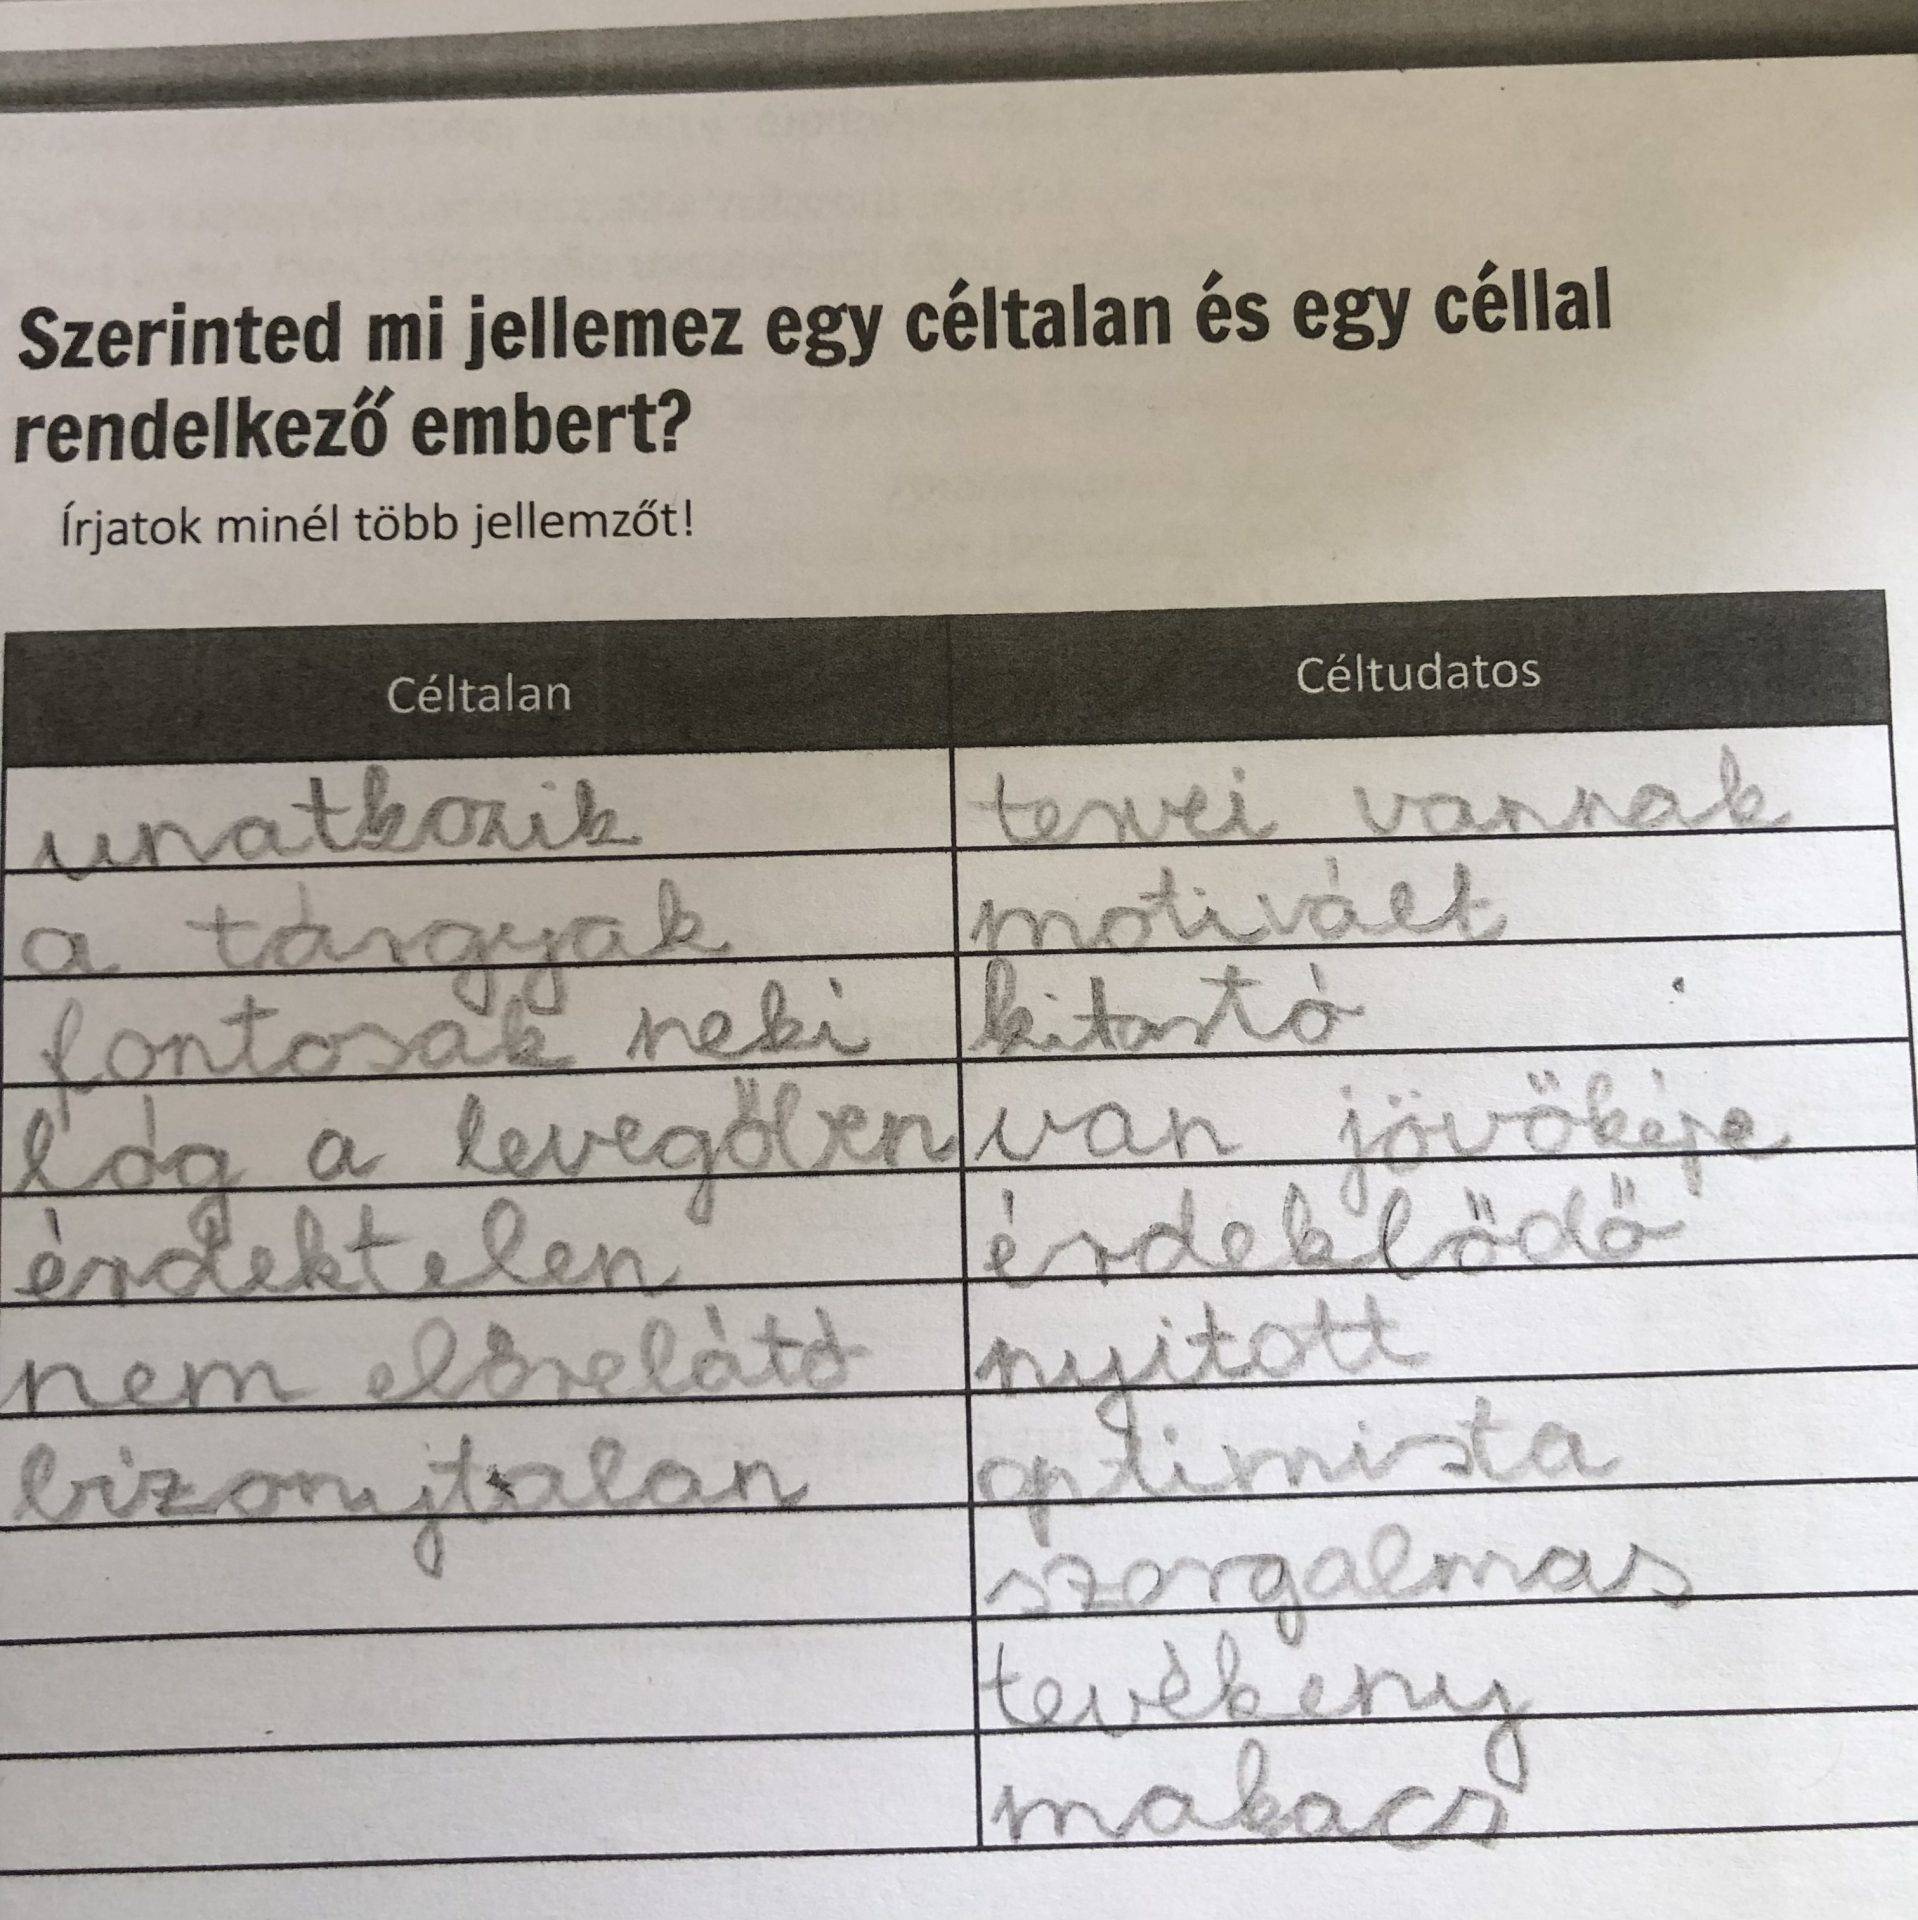 Szerinted mi jellemez egy céltalan és egy céllal
rendelkező embert?
Írjatok minél több jellemzőt!
Céltalan Céltudatos
unatkozik tervei vannak
a tárgyak motivált
fontosak neki kitartó
lóg a levegőben van jövőképe
érdektelen érdeklődő
nem előrelátó nyitott
bizonytalan optimista
szorgalmas
tevékeny
makacs